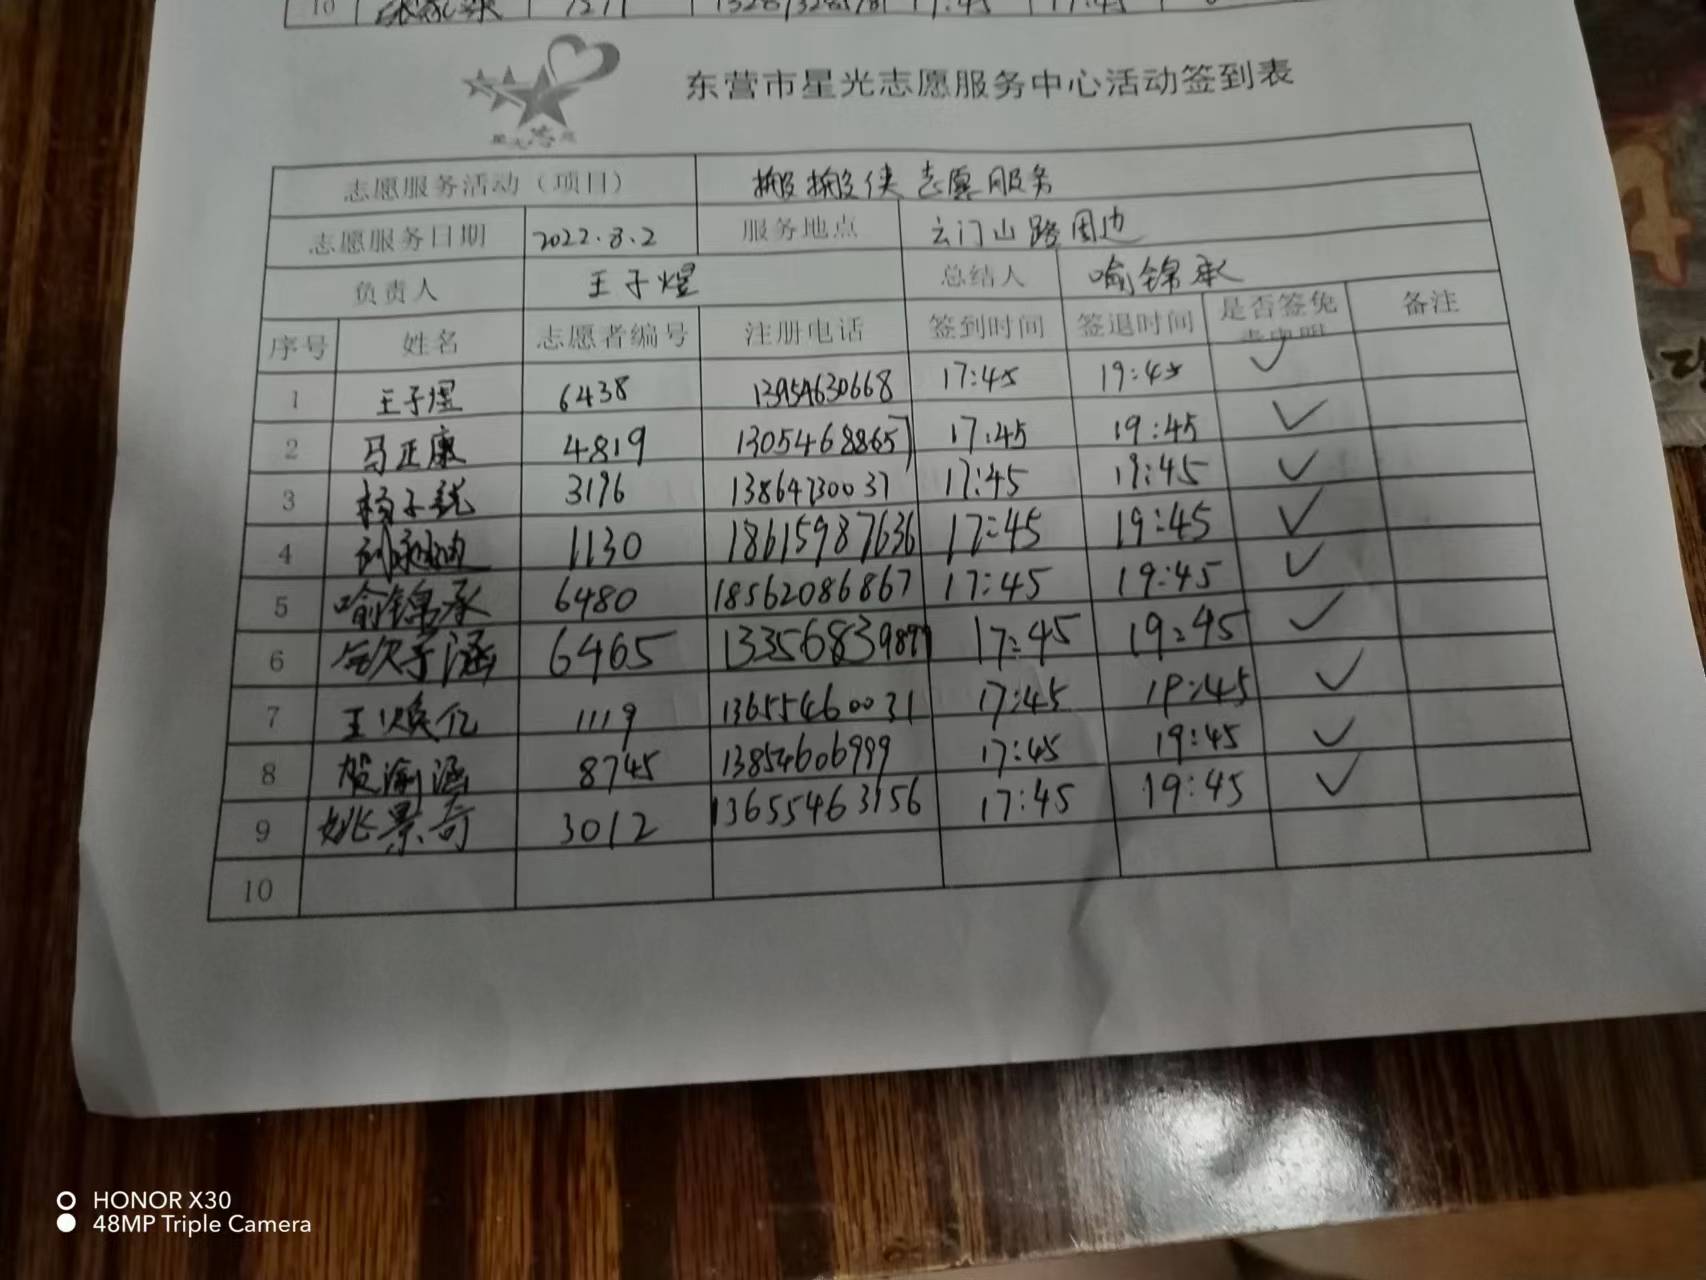 10 1271 17:45 17:45
东营市星光志愿服务中心活动签到表
志愿服务活动（项目） 搬搬侠志愿服务
志愿服务日期 2022.8.2 服务地点 云门山路周边
负责人 王子煜 总结人 喻锦承
序号 姓名 志愿者编号 注册电话 签到时间 签退时间 是否签免 备注
1 王子煜 6438 13954630668 17:45 19:45 ✓
2 马正康 4819 13054688657 17:45 19:45 ✓
3 杨子锐 3196 13864730037 17:45 19:45 ✓
4 1130 18615987636 17:45 19:45 ✓
5 喻锦承 6480 18562086867 17:45 19:45 ✓
6 6465 17:45 19:45 ✓
7 王焕亿 1119 13655460031 17:45 19:45 ✓
8 贺渝涵 8745 13854606999 17:45 19:45 ✓
9 姚景奇 3012 13655463156 17:45 19:45 ✓
10
HONOR X30
48MP Triple Camera